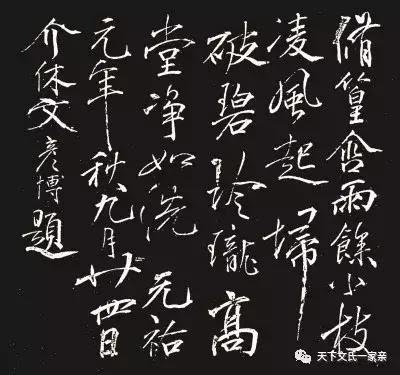 脩篁含雨餘小枝
凌風起掃
破碧玲瓏高
堂净如洗 元祐
元年秋九月廿四日
介休文彦博題
天下文氏一家亲